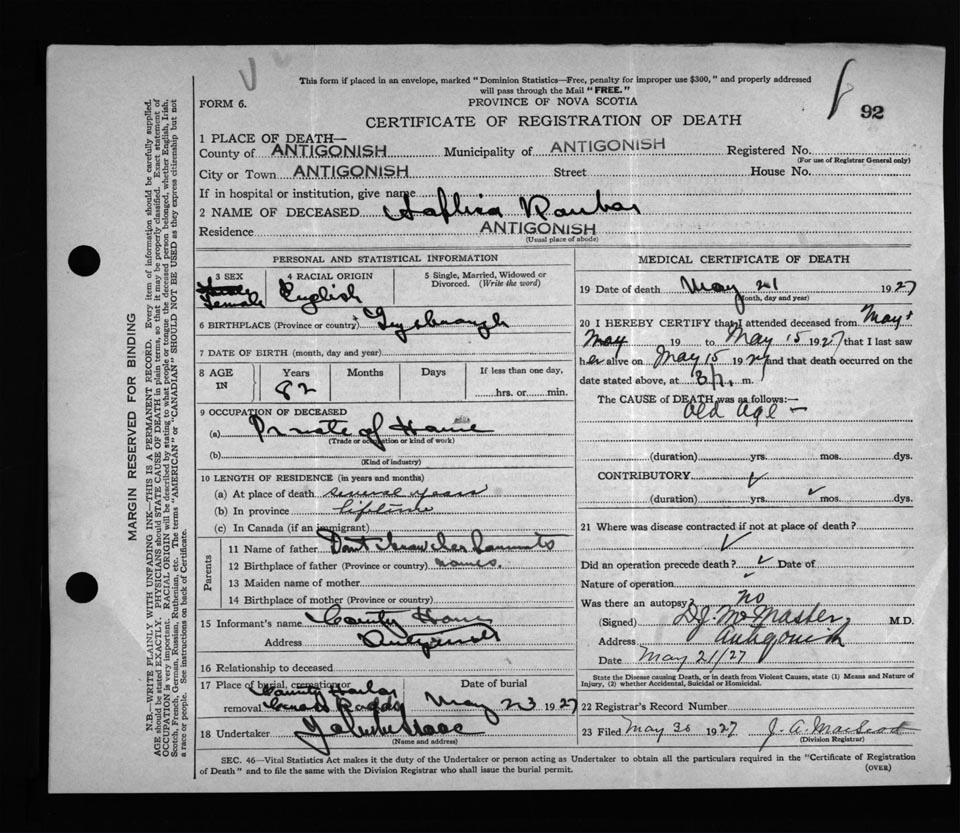 This form if placed in an envelope, marked "Dominion Statistics—Free, penalty for improper use $300," and properly addressed
will pass through the Mail "FREE."
FORM 6.
PROVINCE OF NOVA SCOTIA
92
CERTIFICATE OF REGISTRATION OF DEATH
1 PLACE OF DEATH—
County of ANTIGONISH Municipality of ANTIGONISH Registered No.
(For use of Registrar General only)
City or Town ANTIGONISH Street House No.
If in hospital or institution, give name
2 NAME OF DECEASED
Residence ANTIGONISH
(Usual place of abode)
PERSONAL AND STATISTICAL INFORMATION
3 SEX 4 RACIAL ORIGIN 5 Single, Married, Widowed or
Divorced. (Write the word)
Female English
6 BIRTHPLACE (Province or country) Guysborough
7 DATE OF BIRTH (month, day and year)
8 AGE IN Years Months Days If less than one day,
82 hrs. or min.
9 OCCUPATION OF DECEASED
(a) Inmate of Home
(Trade or occupation or kind of work)
(b)
(Kind of industry)
10 LENGTH OF RESIDENCE (in years and months)
(a) At place of death several years
(b) In province lifetime
(c) In Canada (if an immigrant)
Parents
11 Name of father Dont know her parents
12 Birthplace of father (Province or country) names.
13 Maiden name of mother
14 Birthplace of mother (Province or country)
15 Informant's name County Home
Address Antigonish
16 Relationship to deceased
17 Place of burial, cremation or Date of burial
removal County May 23 1927
18 Undertaker
(Name and address)
MEDICAL CERTIFICATE OF DEATH
19 Date of death May 21 1927
(Month, day and year)
20 I HEREBY CERTIFY that I attended deceased from May
May 19 to May 15 1927 that I last saw
her alive on May 15 1927 and that death occurred on the
date stated above, at m.
The CAUSE of DEATH was as follows:—
Old Age —
(duration) yrs. mos. dys.
CONTRIBUTORY
(duration) yrs. mos. dys.
21 Where was disease contracted if not at place of death?
Did an operation precede death? Date of
Nature of operation
Was there an autopsy? no
(Signed) McMaster M.D.
Address Antigonish
Date May 21/27
State the Disease causing Death, or in death from Violent Causes, state (1) Means and Nature of
Injury, (2) whether Accidental, Suicidal or Homicidal.
22 Registrar's Record Number
23 Filed May 30 1927 J. A.
(Division Registrar)
SEC. 46—Vital Statistics Act makes it the duty of the Undertaker or person acting as Undertaker to obtain all the particulars required in the "Certificate of Registration
of Death" and to file the same with the Division Registrar who shall issue the burial permit.
(OVER)
MARGIN RESERVED FOR BINDING
N.B.—WRITE PLAINLY WITH UNFADING INK—THIS IS A PERMANENT RECORD. Every item of information should be carefully supplied.
AGE should be stated EXACTLY. PHYSICIANS should STATE CAUSE OF DEATH in plain terms, so that it may be properly classified. Exact statement of
OCCUPATION is very important. RACIAL ORIGIN will be described by stating to what people or tongue the deceased person belonged, whether English, Irish,
Scotch, French, German, Russian, Ruthenian, etc. The terms "AMERICAN" or "CANADIAN" SHOULD NOT BE USED as they express citizenship but not
a race or people. See instructions on back of Certificate.